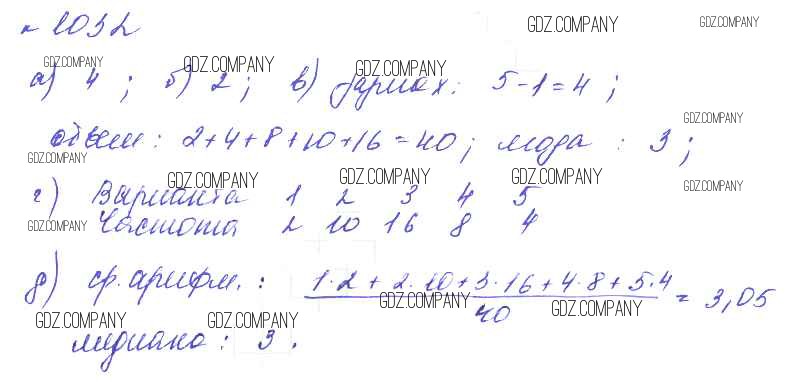 № 1032 GDZ.COMPANY GDZ.COMPANY
GDZ.COMPANY GDZ.COMPANY GDZ.COMPANY
а) 4 ; б) 2 ; в) размах : 5 - 1 = 4 ;
GDZ.COMPANY
объем : 2+4+8+10+16 = 40 ; мода : 3 ;
GDZ.COMPANY
GDZ.COMPANY GDZ.COMPANY GDZ.COMPANY GDZ.COMPANY
г) Варианта 1 2 3 4 5
GDZ.COMPANY Частота 2 10 16 8 4
д) ср. арифм. : 1·2 + 2·10 + 3·16 + 4·8 + 5·4 / 40 = 3,05
GDZ.COMPANY GDZ.COMPANY
GDZ.COMPANY GDZ.COMPANY
медиана : 3 .